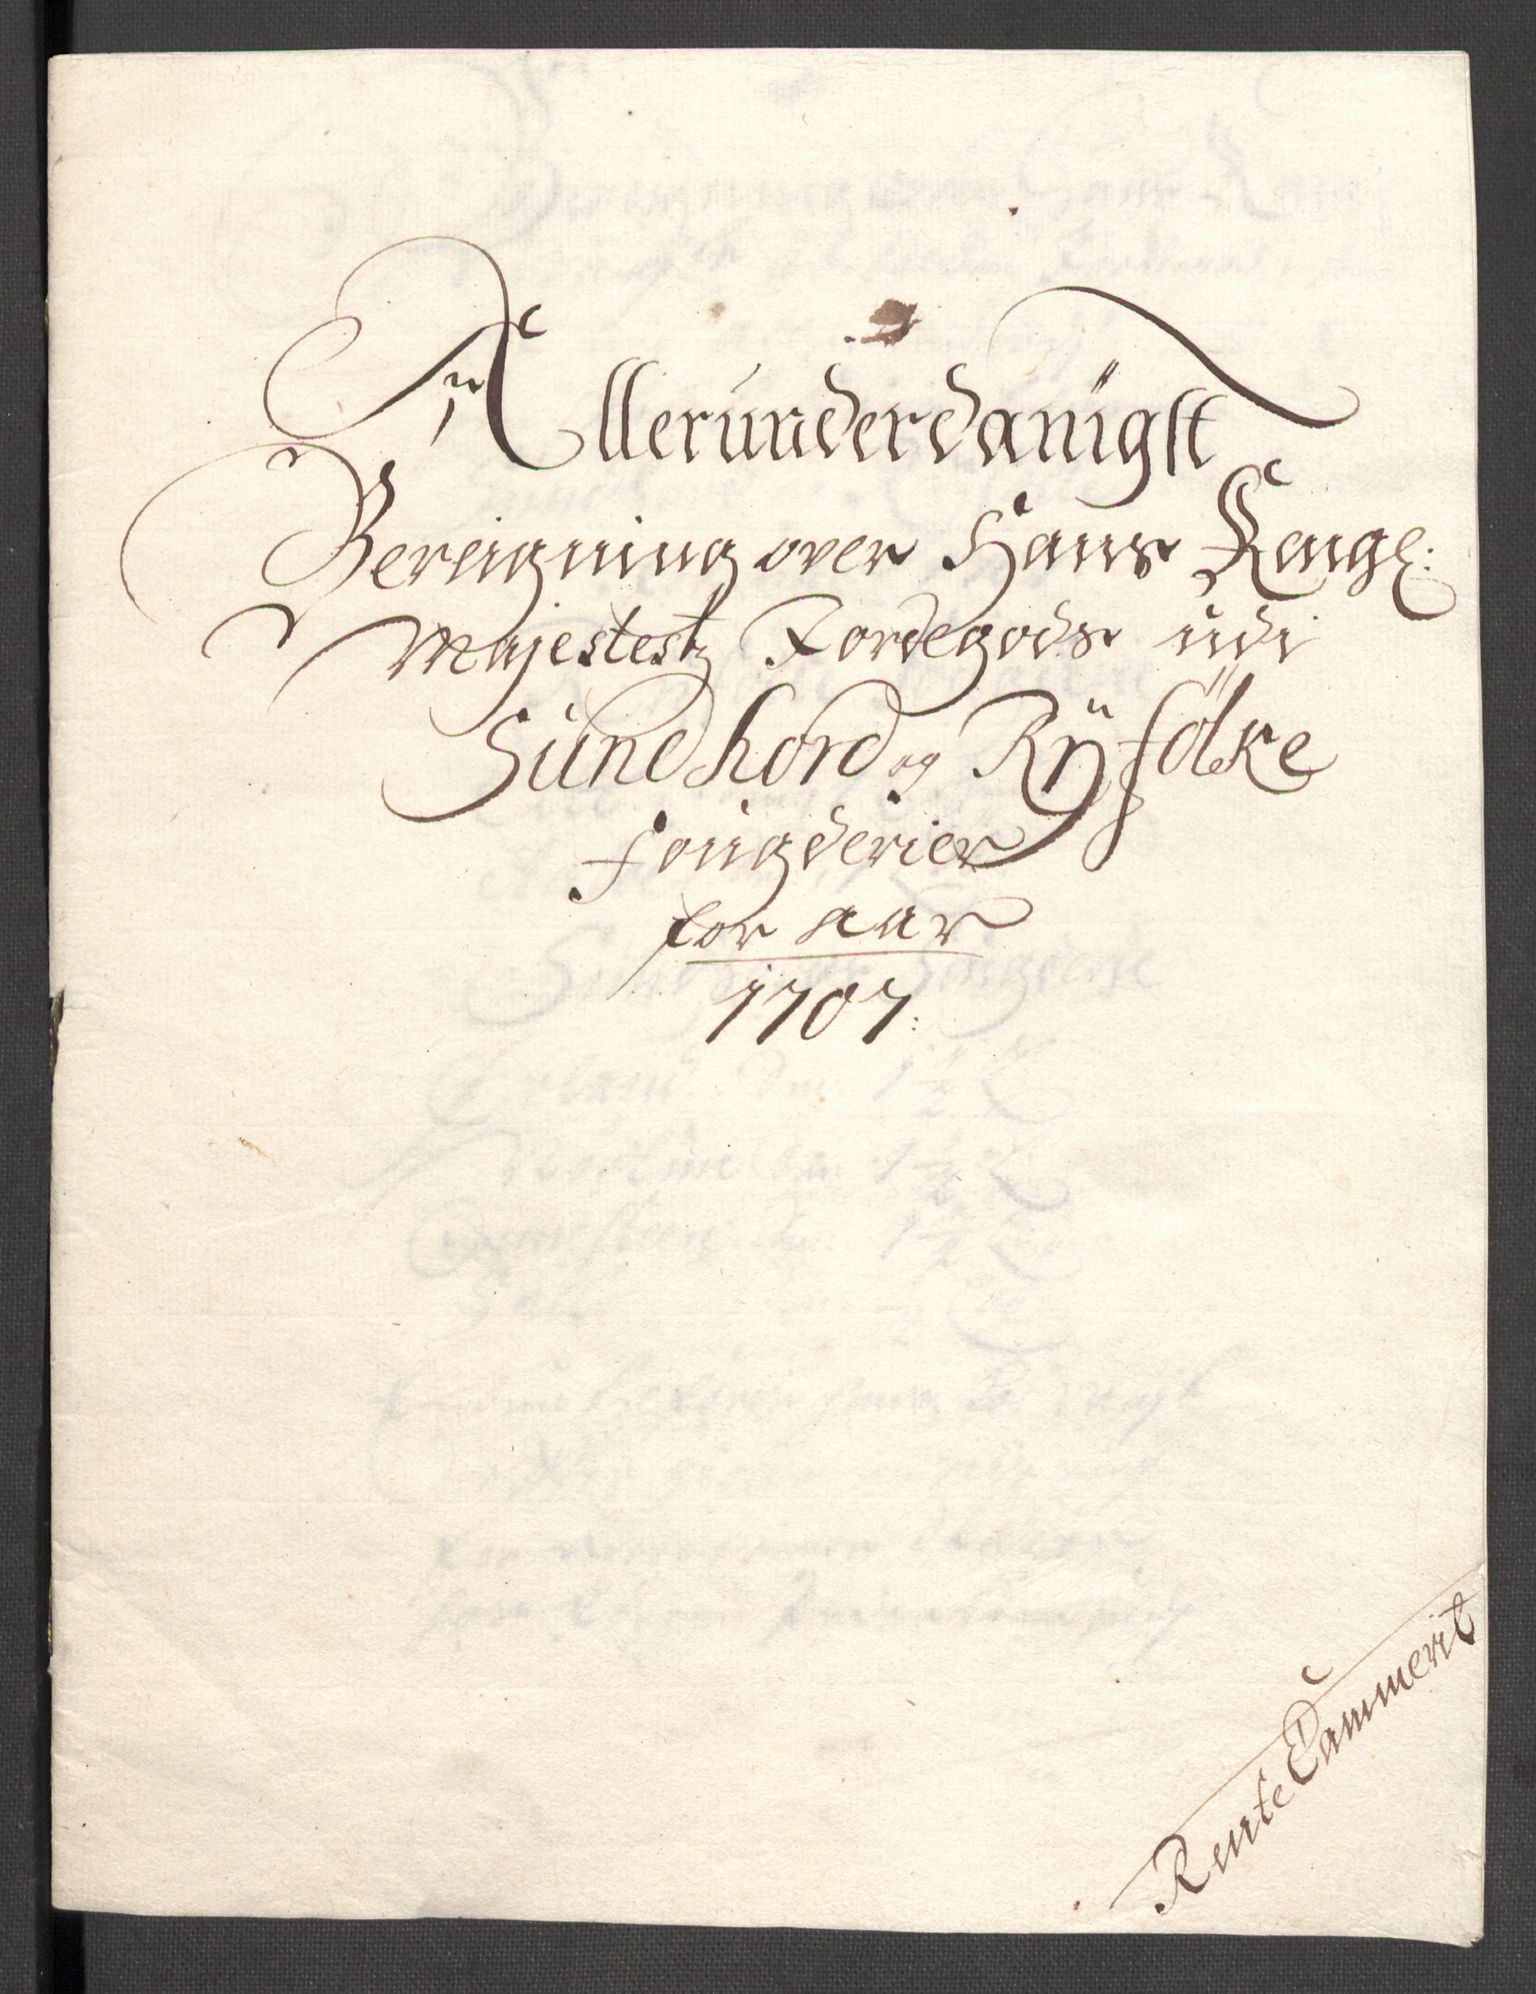 Allerunderdanigst
Beregning over Hans Kongl:
Majestestz Jordegods udi
Sundhord og Ryfölke
fougderier
for aar
1707:
Rente Cammerit